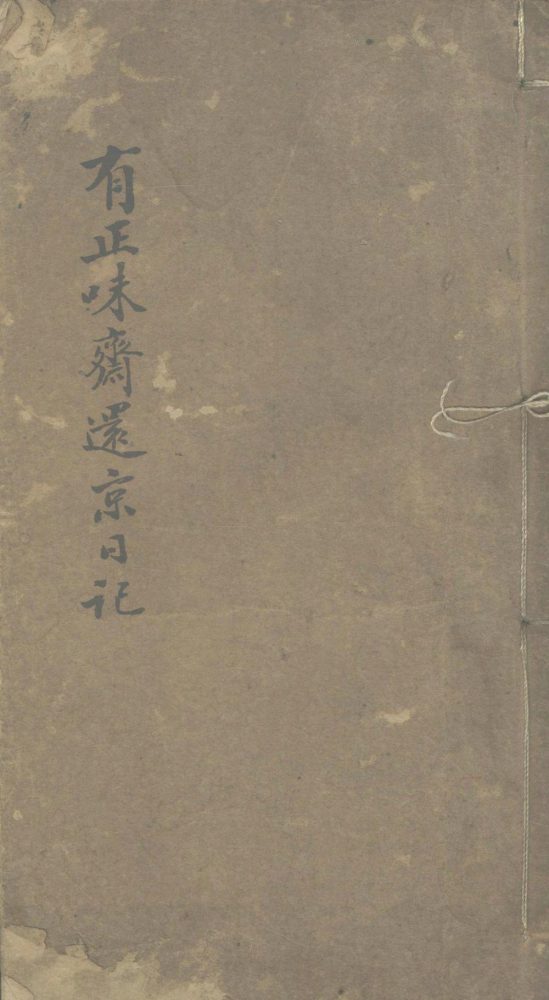 有正味齋還京日记